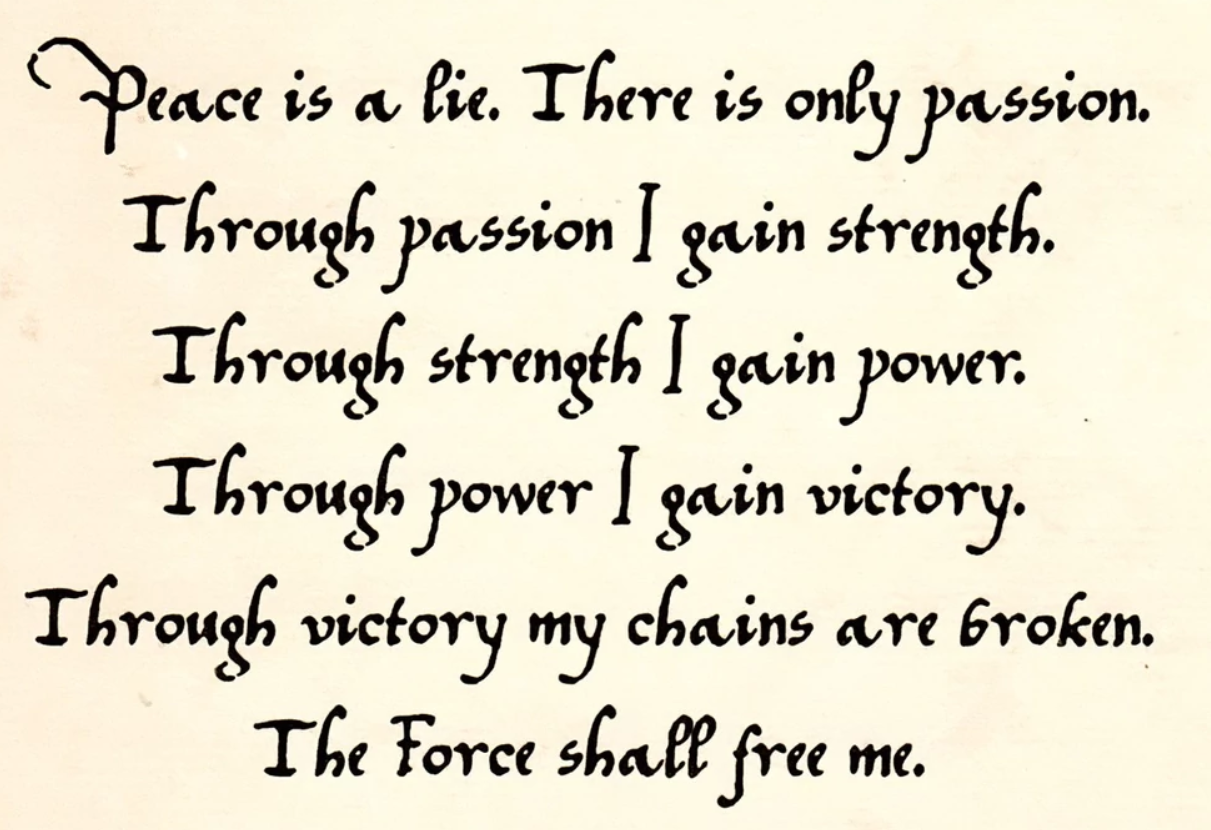 Peace is a lie. There is only passion.
Through passion I gain strength.
Through strength I gain power.
Through power I gain victory.
Through victory my chains are broken.
The Force shall free me.